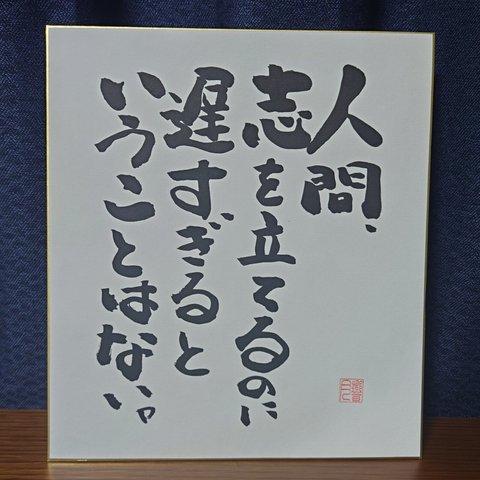 人間、
志を立てるのに
遅すぎると
いうことはない。